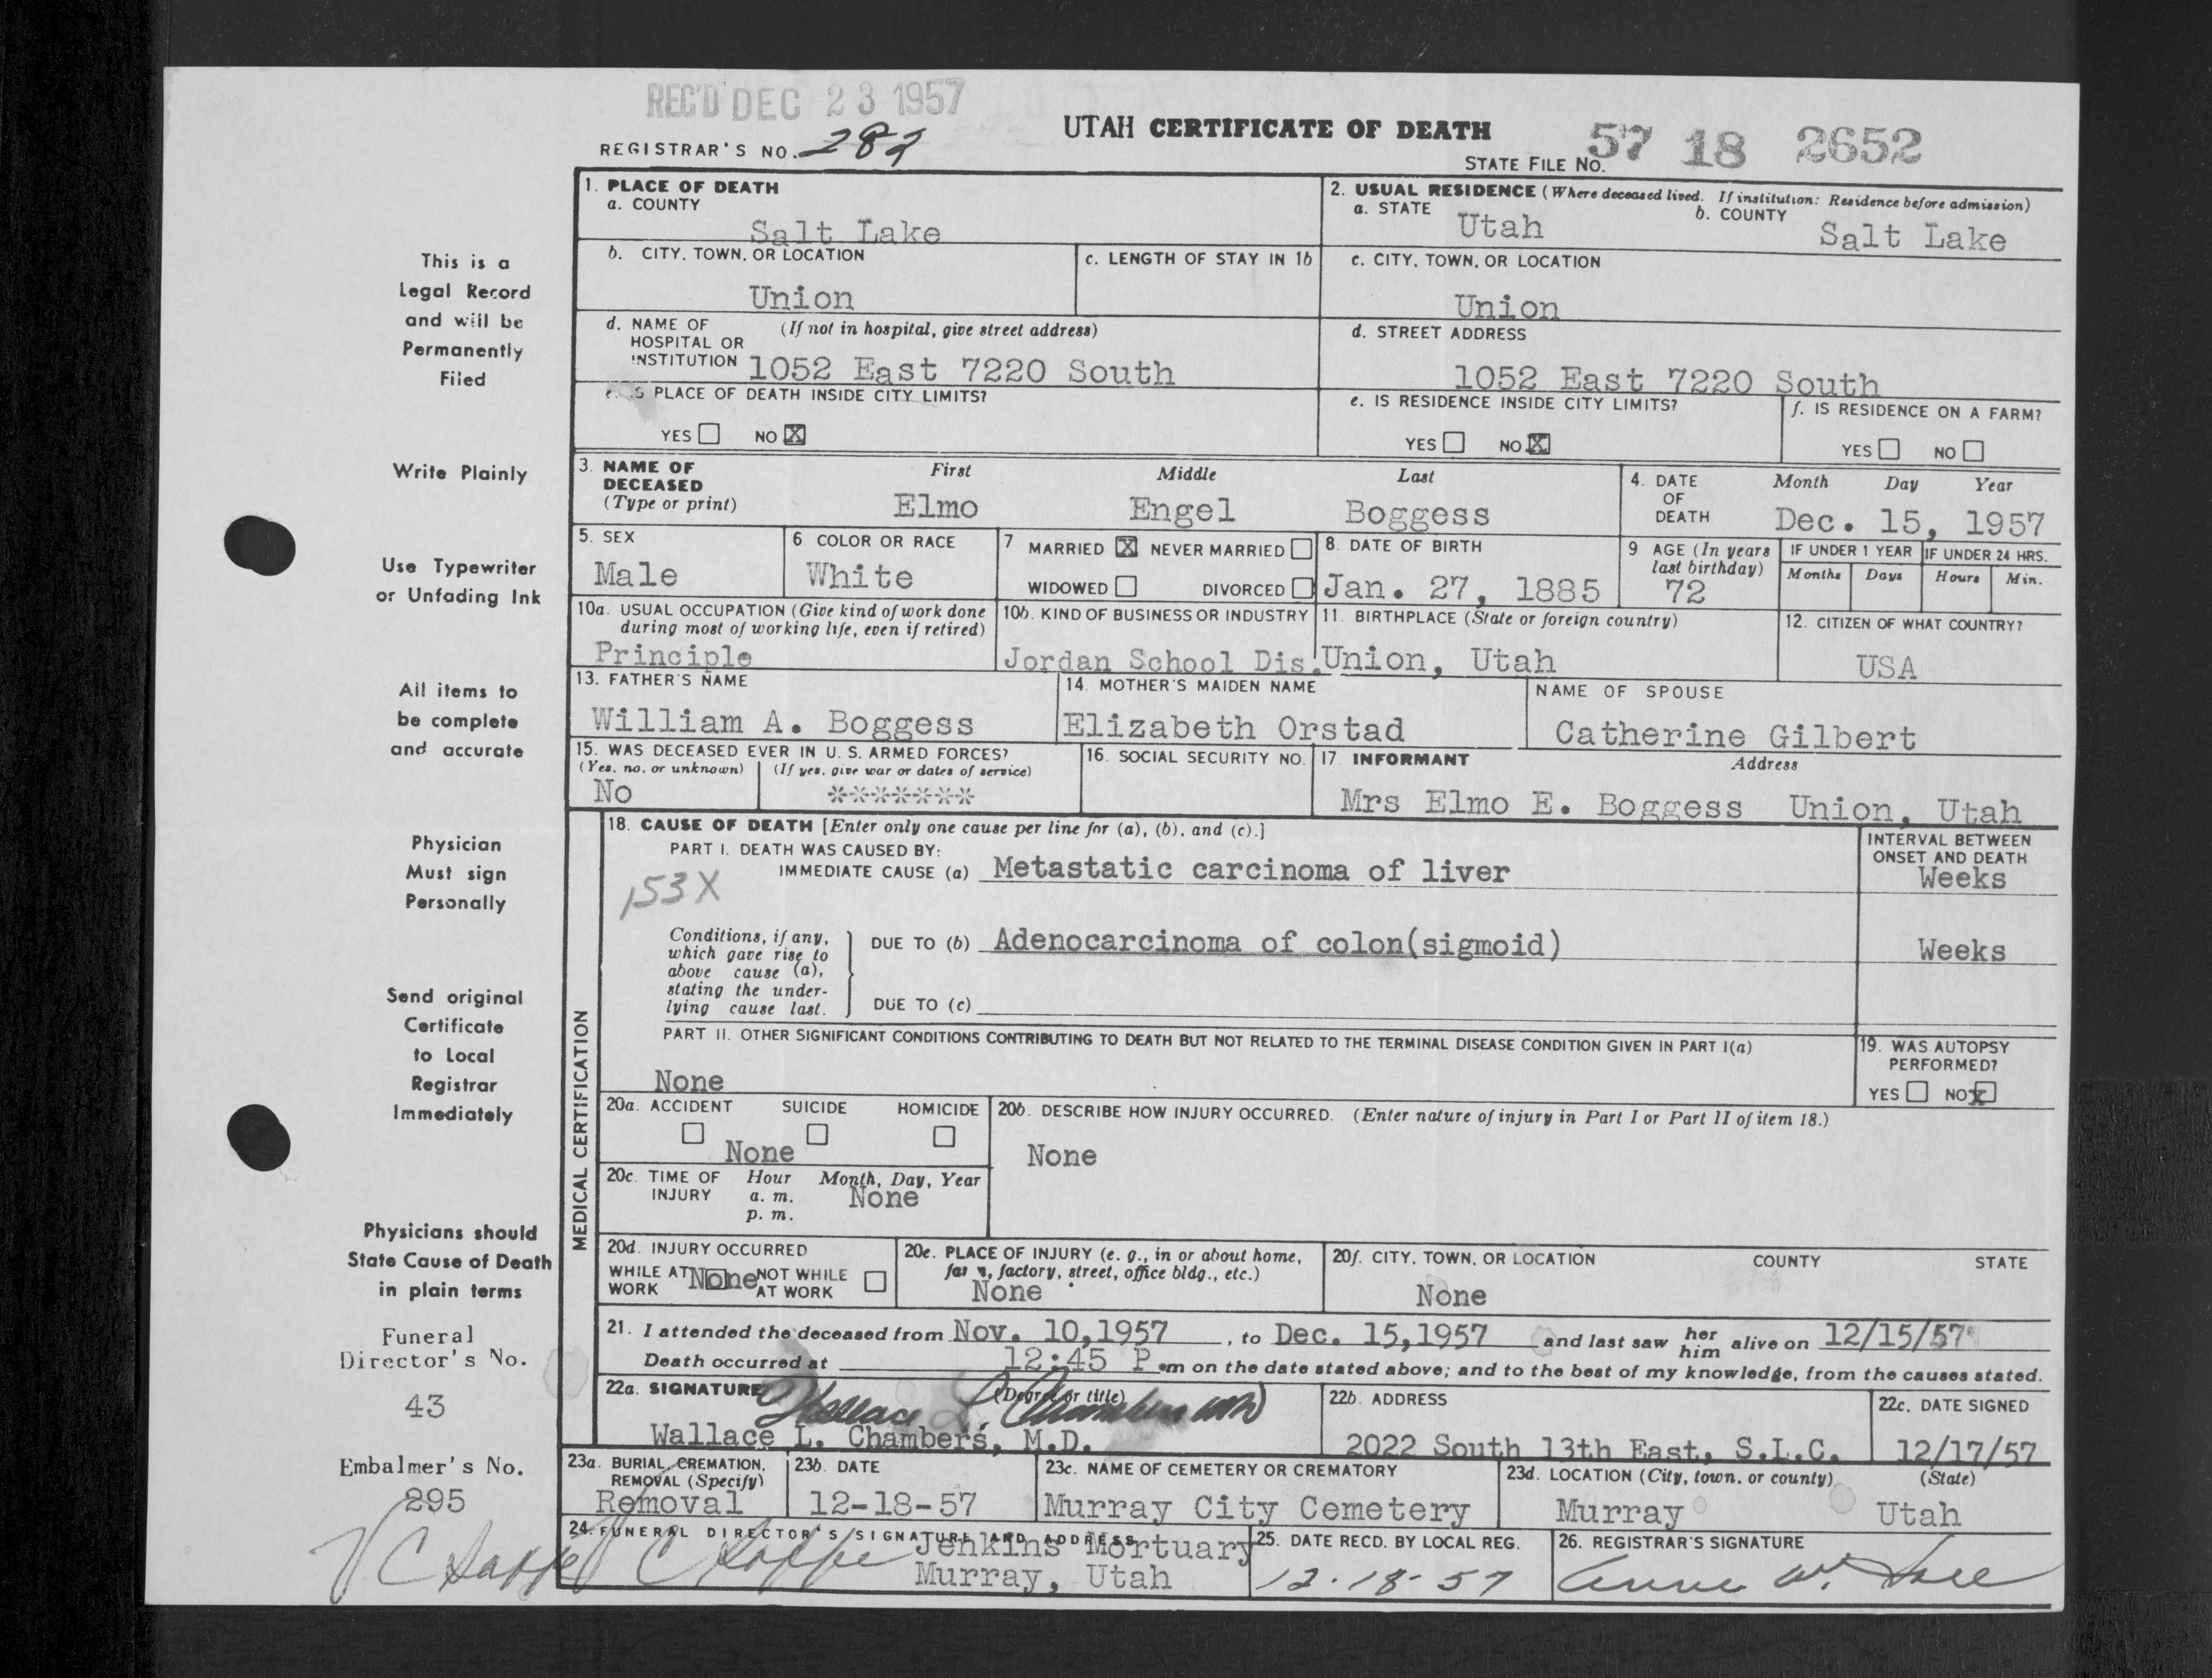 REC'D DEC 23 1957
REGISTRAR'S NO. 282
UTAH CERTIFICATE OF DEATH
STATE FILE NO. 57 18 2652
This is a
Legal Record
and will be
Permanently
Filed
Write Plainly
Use Typewriter
or Unfading Ink
All items to
be complete
and accurate
Physician
Must sign
Personally
Send original
Certificate
to Local
Registrar
Immediately
Physicians should
State Cause of Death
in plain terms
Funeral
Director's No.
43
Embalmer's No.
295
1. PLACE OF DEATH
a. COUNTY
Salt Lake
2. USUAL RESIDENCE (Where deceased lived. If institution: Residence before admission)
a. STATE Utah b. COUNTY Salt Lake
b. CITY, TOWN, OR LOCATION
Union
c. LENGTH OF STAY IN 1b
c. CITY, TOWN, OR LOCATION
Union
d. NAME OF (If not in hospital, give street address)
HOSPITAL OR
INSTITUTION 1052 East 7220 South
d. STREET ADDRESS
1052 East 7220 South
e. IS PLACE OF DEATH INSIDE CITY LIMITS?
YES NO X
e. IS RESIDENCE INSIDE CITY LIMITS?
YES NO X
f. IS RESIDENCE ON A FARM?
YES NO
3. NAME OF DECEASED
(Type or print)
First Middle Last
Elmo Engel Boggess
4. DATE OF DEATH
Month Day Year
Dec. 15, 1957
5. SEX
Male
6. COLOR OR RACE
White
7 MARRIED X NEVER MARRIED
WIDOWED DIVORCED
8. DATE OF BIRTH
Jan. 27, 1885
9 AGE (In years
last birthday)
72
IF UNDER 1 YEAR IF UNDER 24 HRS.
Months Days Hours Min.
10a. USUAL OCCUPATION (Give kind of work done
during most of working life, even if retired)
Principle
10b. KIND OF BUSINESS OR INDUSTRY
Jordan School Dis.
11. BIRTHPLACE (State or foreign country)
Union, Utah
12. CITIZEN OF WHAT COUNTRY?
USA
13. FATHER'S NAME
William A. Boggess
14. MOTHER'S MAIDEN NAME
Elizabeth Orstad
NAME OF SPOUSE
Catherine Gilbert
15. WAS DECEASED EVER IN U. S. ARMED FORCES?
(Yes, no, or unknown) (If yes, give war or dates of service)
No *******
16. SOCIAL SECURITY NO.
17. INFORMANT Address
Mrs Elmo E. Boggess Union, Utah
MEDICAL CERTIFICATION
18. CAUSE OF DEATH [Enter only one cause per line for (a), (b), and (c).]
PART I. DEATH WAS CAUSED BY:
IMMEDIATE CAUSE (a) Metastatic carcinoma of liver
INTERVAL BETWEEN
ONSET AND DEATH
Weeks
153X
Conditions, if any,
which gave rise to
above cause (a),
stating the under-
lying cause last.
DUE TO (b) Adenocarcinoma of colon(sigmoid)
Weeks
DUE TO (c)
PART II. OTHER SIGNIFICANT CONDITIONS CONTRIBUTING TO DEATH BUT NOT RELATED TO THE TERMINAL DISEASE CONDITION GIVEN IN PART I(a)
None
19. WAS AUTOPSY
PERFORMED?
YES NO X
20a. ACCIDENT SUICIDE HOMICIDE
None
20b. DESCRIBE HOW INJURY OCCURRED. (Enter nature of injury in Part I or Part II of item 18.)
None
20c. TIME OF INJURY
Hour Month, Day, Year
a. m. None
p. m.
20d. INJURY OCCURRED
WHILE AT WORK None NOT WHILE AT WORK
20e. PLACE OF INJURY (e. g., in or about home,
farm, factory, street, office bldg., etc.)
None
20f. CITY, TOWN, OR LOCATION COUNTY STATE
None
21. I attended the deceased from Nov. 10,1957, to Dec. 15,1957 and last saw her him alive on 12/15/57
Death occurred at 12:45 P.m on the date stated above; and to the best of my knowledge, from the causes stated.
22a. SIGNATURE (Degree or title)
Wallace L. Chambers MD
Wallace L. Chambers, M.D.
22b. ADDRESS
2022 South 13th East, S.L.C.
22c. DATE SIGNED
12/17/57
23a. BURIAL, CREMATION,
REMOVAL (Specify)
Removal
23b. DATE
12-18-57
23c. NAME OF CEMETERY OR CREMATORY
Murray City Cemetery
23d. LOCATION (City, town, or county) (State)
Murray Utah
24. FUNERAL DIRECTOR'S SIGNATURE AND ADDRESS
Jenkins Mortuary
Murray, Utah
25. DATE RECD. BY LOCAL REG.
12-18-57
26. REGISTRAR'S SIGNATURE
Anna W.